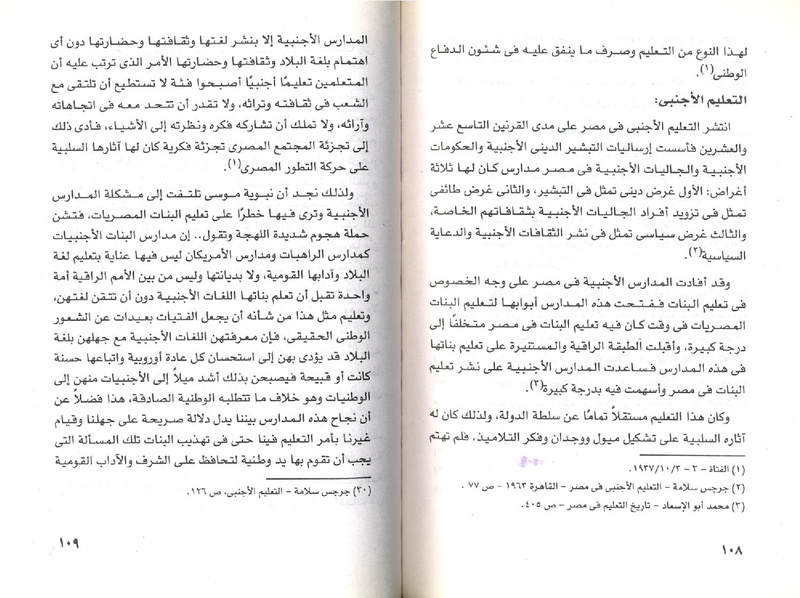 لهذا النوع من التعليم وصرف ما ينفق عليه فى شئون الدفاع
الوطنى(١).
التعليم الأجنبى:
انتشر التعليم الأجنبى فى مصر على مدى القرنين التاسع عشر
والعشرين فأسست إرساليات التبشير الدينى الأجنبية والحكومات
الأجنبية والجاليات الأجنبية فى مصر مدارس كان لها ثلاثة
أغراض: الأول غرض دينى تمثل فى التبشير، والثانى غرض طائفى
تمثل فى تزويد أفراد الجاليات الأجنبية بثقافاتهم الخاصة،
والثالث غرض سياسى تمثل فى نشر الثقافات الأجنبية والدعاية
السياسية(٢).
وقد أفادت المدارس الأجنبية فى مصر على وجه الخصوص
فى تعليم البنات ففتحت هذه المدارس أبوابها لتعليم البنات
المصريات فى وقت كان فيه تعليم البنات فى مصر متخلفًا إلى
درجة كبيرة، وأقبلت الطبقة الراقية والمستنيرة على تعليم بناتها
فى هذه المدارس فساعدت المدارس الأجنبية على نشر تعليم
البنات فى مصر وأسهمت فيه بدرجة كبيرة(٣).
وكان هذا التعليم مستقلاً تمامًا عن سلطة الدولة، ولذلك كان له
آثاره السلبية على تشكيل ميول ووجدان وفكر التلاميذ، فلم تهتم
(١) الفتاة – ٣ – ١٩٣٧/١٠/٣.
(٢) جرجس سلامة – التعليم الأجنبى فى مصر – القاهرة ١٩٦٣ – ص ٧٧ .
(٣) محمد أبو الإسعاد – تاريخ التعليم فى مصر – ص ٤٠٥.
١٠٨
المدارس الأجنبية إلا بنشر لغتها وثقافتها وحضارتها دون أى
اهتمام بلغة البلاد وثقافتها وحضارتها الأمر الذى ترتب عليه أن
المتعلمين تعليمًا أجنبيًا أصبحوا فئة لا تستطيع أن تلتقى مع
الشعب فى ثقافته وتراثه، ولا تقدر أن تتحد معه فى اتجاهاته
وآرائه، ولا تملك أن تشاركه فكره ونظرته إلى الأشياء، فأدى ذلك
إلى تجزئة المجتمع المصرى تجزئة فكرية كان لها آثارها السلبية
على حركة التطور المصرى(١).
ولذلك نجد أن نبوية موسى تلتفت إلى مشكلة المدارس
الأجنبية وترى فيها خطرًا على تعليم البنات المصريات، فتشن
حملة هجوم شديدة اللهجة وتقول.. إن مدارس البنات الأجنبيات
كمدارس الراهبات ومدارس الأمريكان ليس فيها عناية بتعليم لغة
البلاد وآدابها القومية، ولا بديانتها وليس من بين الأمم الراقية أمة
واحدة تقبل أن تعلم بناتها اللغات الأجنبية دون أن تتقن لغتهن،
وتعليم مثل هذا من شأنه أن يجعل الفتيات بعيدات عن الشعور
الوطنى الحقيقى، فإن معرفتهن اللغات الأجنبية مع جهلهن بلغة
البلاد قد يؤدى بهن إلى استحسان كل عادة أوروبية واتباعها حسنة
كانت أو قبيحة فيصبحن بذلك أشد ميلاً إلى الأجنبيات منهن إلى
الوطنيات وهو خلاف ما تتطلبه الوطنية الصادقة، هذا فضلاً عن
أن نجاح هذه المدارس بيننا يدل دلالة صريحة على جهلنا وقيام
غيرنا بأمر التعليم فينا حتى فى تهذيب البنات تلك المسألة التى
يجب أن تقوم بها يد وطنية لتحافظ على الشرف والآداب القومية
(٣٠) جرجس سلامة – التعليم الأجنبى، ص ١٢٦.
١٠٩